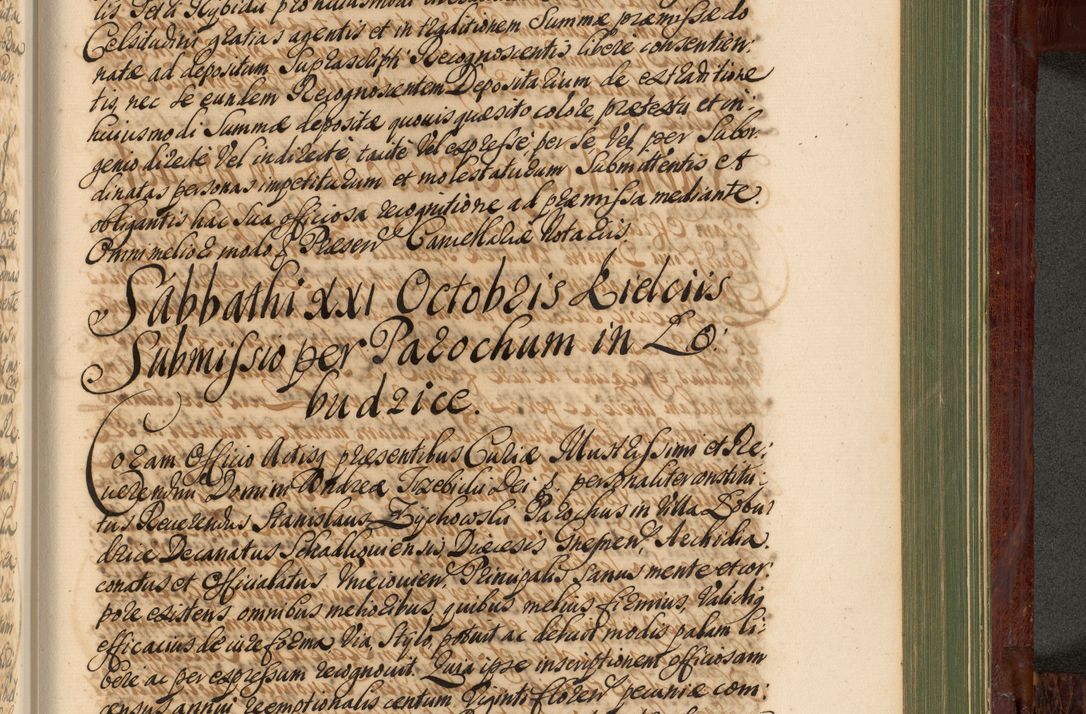 Celsitudini gratias agentis et in traditionem Summæ præmissæ do
natæ ad depositum Suprascripti Recognoscentis libere consentien
tis, nec se eundem Recognoscentem Depositarium de extraditione
huiusmodi Summæ depositæ quouis quæsito colore, prætextu et in-
genio directè Vel indirectè, tacitè Vel expressè per se Vel per Subor
dinatas personas impetiturum et molestaturum Submittentis et
obligantis hac sua officiosa recognitione ad præmissa mediante.
Omni meliori modo Præsen Cancellariæ Notariis
Sabbathi XXI Octobris Kielciis
Submissio per Parochum in Lo:
budzice.
Coram Officio Actisq præsentibus Curiæ Illustrissimi et Re:
uerendmi Domini Andreæ Trzebicki Dei g. personaliter constitu:
tus Reuerendus Stanislaus Zychowski Parochus in Villa Łobu
dzice Decanatus Schadkouiensis Diœcesis Gnesnen, Archidia.
conatus et Officialatus Vnieiouien, Principalis sanus mente et cor
pore existens omnibus melioribus, quibus melius firmius, Validiq
efficacius de iure forma Via, Stylo, potuit ac debuit modis palam li:
bere ac per expressum recognouit. Quia ipse inscriptionem officiosam
census annui reemptionalis centum Viginti floren pecuniæ com: